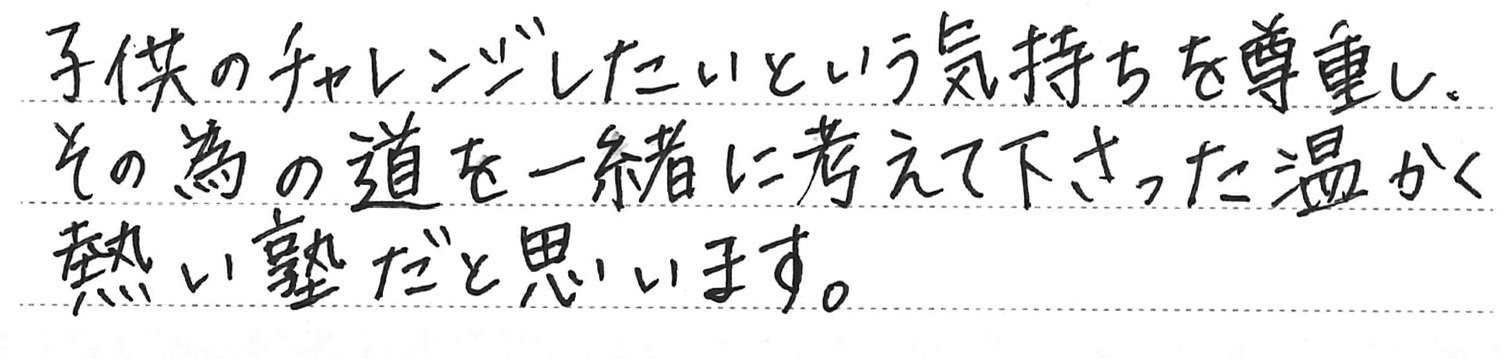 子供のチャレンジしたいという気持ちを尊重し、
その為の道を一緒に考えて下さった温かく
熱い塾だと思います。